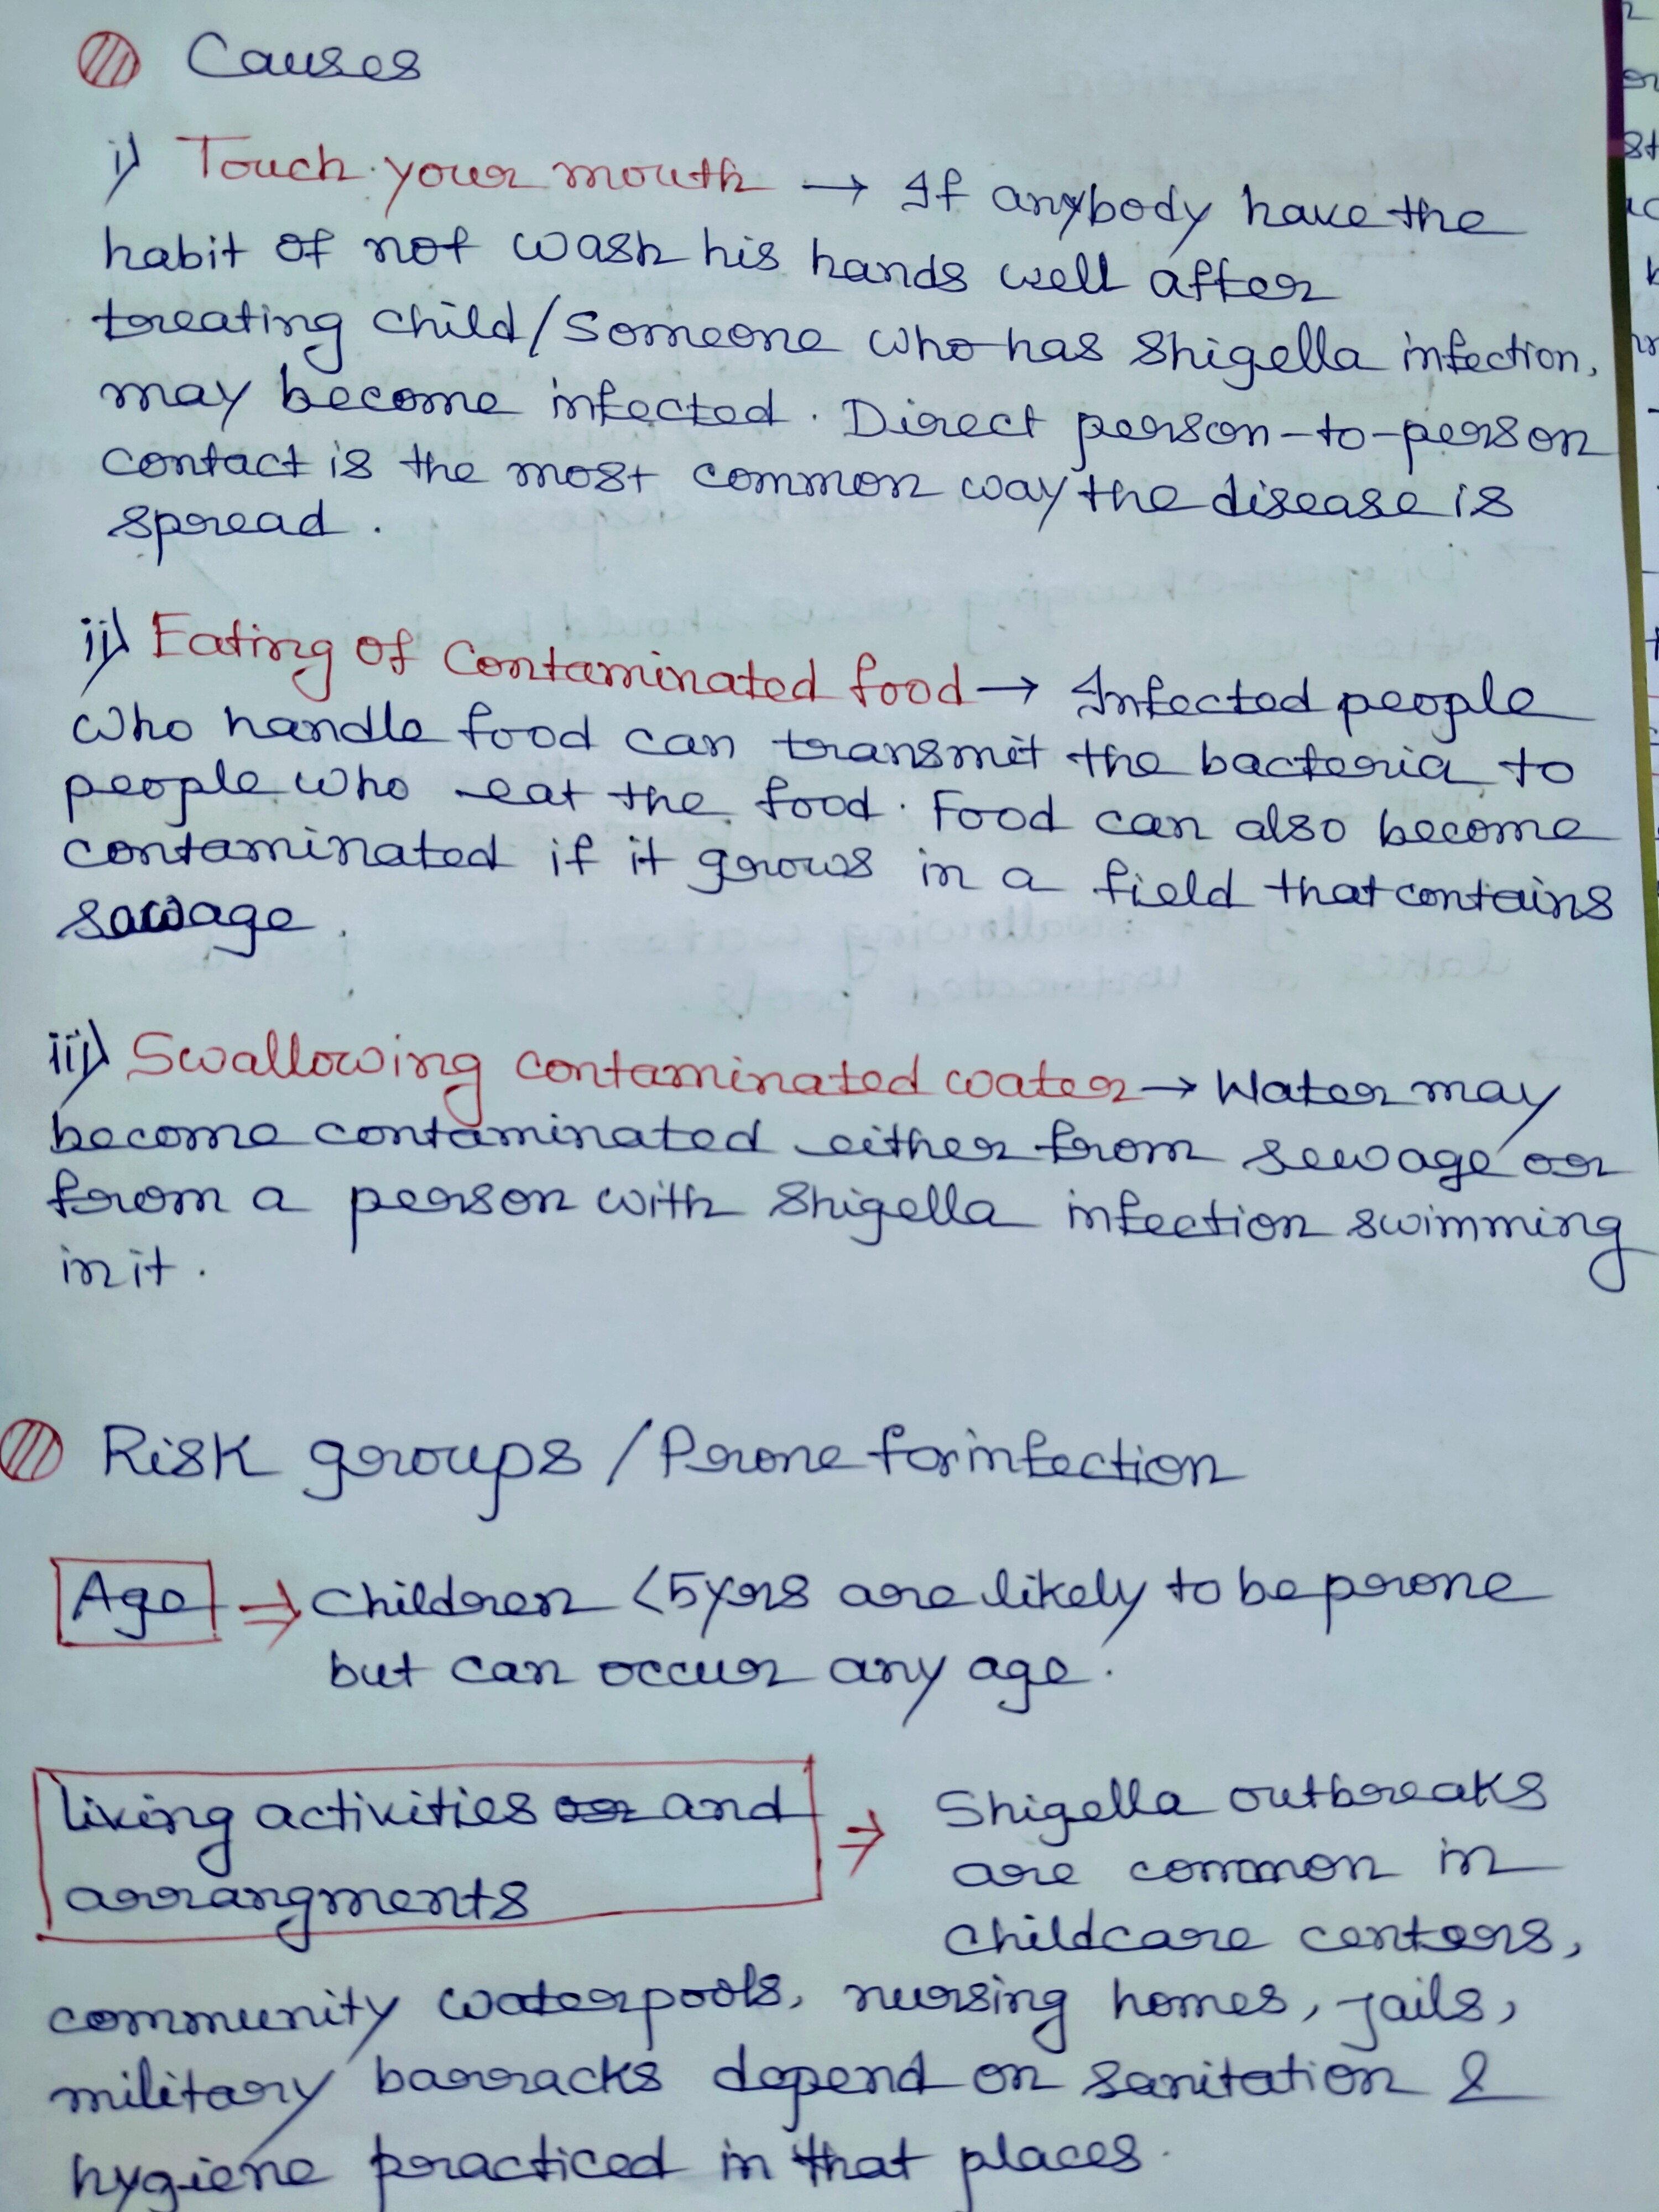 Causes
i) Touch your mouth → If anybody have the
habit of not wash his hands well after
treating child/someone who has Shigella infection,
may become infected. Direct person-to-person
contact is the most common way the disease is
spread.
ii) Eating of contaminated food → Infected people
who handle food can transmit the bacteria to
people who eat the food. Food can also become
contaminated if it grows in a field that contains
sawage.
iii) Swallowing contaminated water → Water may
become contaminated either from sewage or
from a person with Shigella infection swimming
in it.
Risk groups / Prone for infection
Age ⇒ Children <5yrs are likely to be prone
but can occur any age.
living activities or and
arrangments ⇒ Shigella outbreaks
are common in
childcare centers,
community waterpools, nursing homes, jails,
military barracks depend on sanitation &
hygiene practiced in that places.